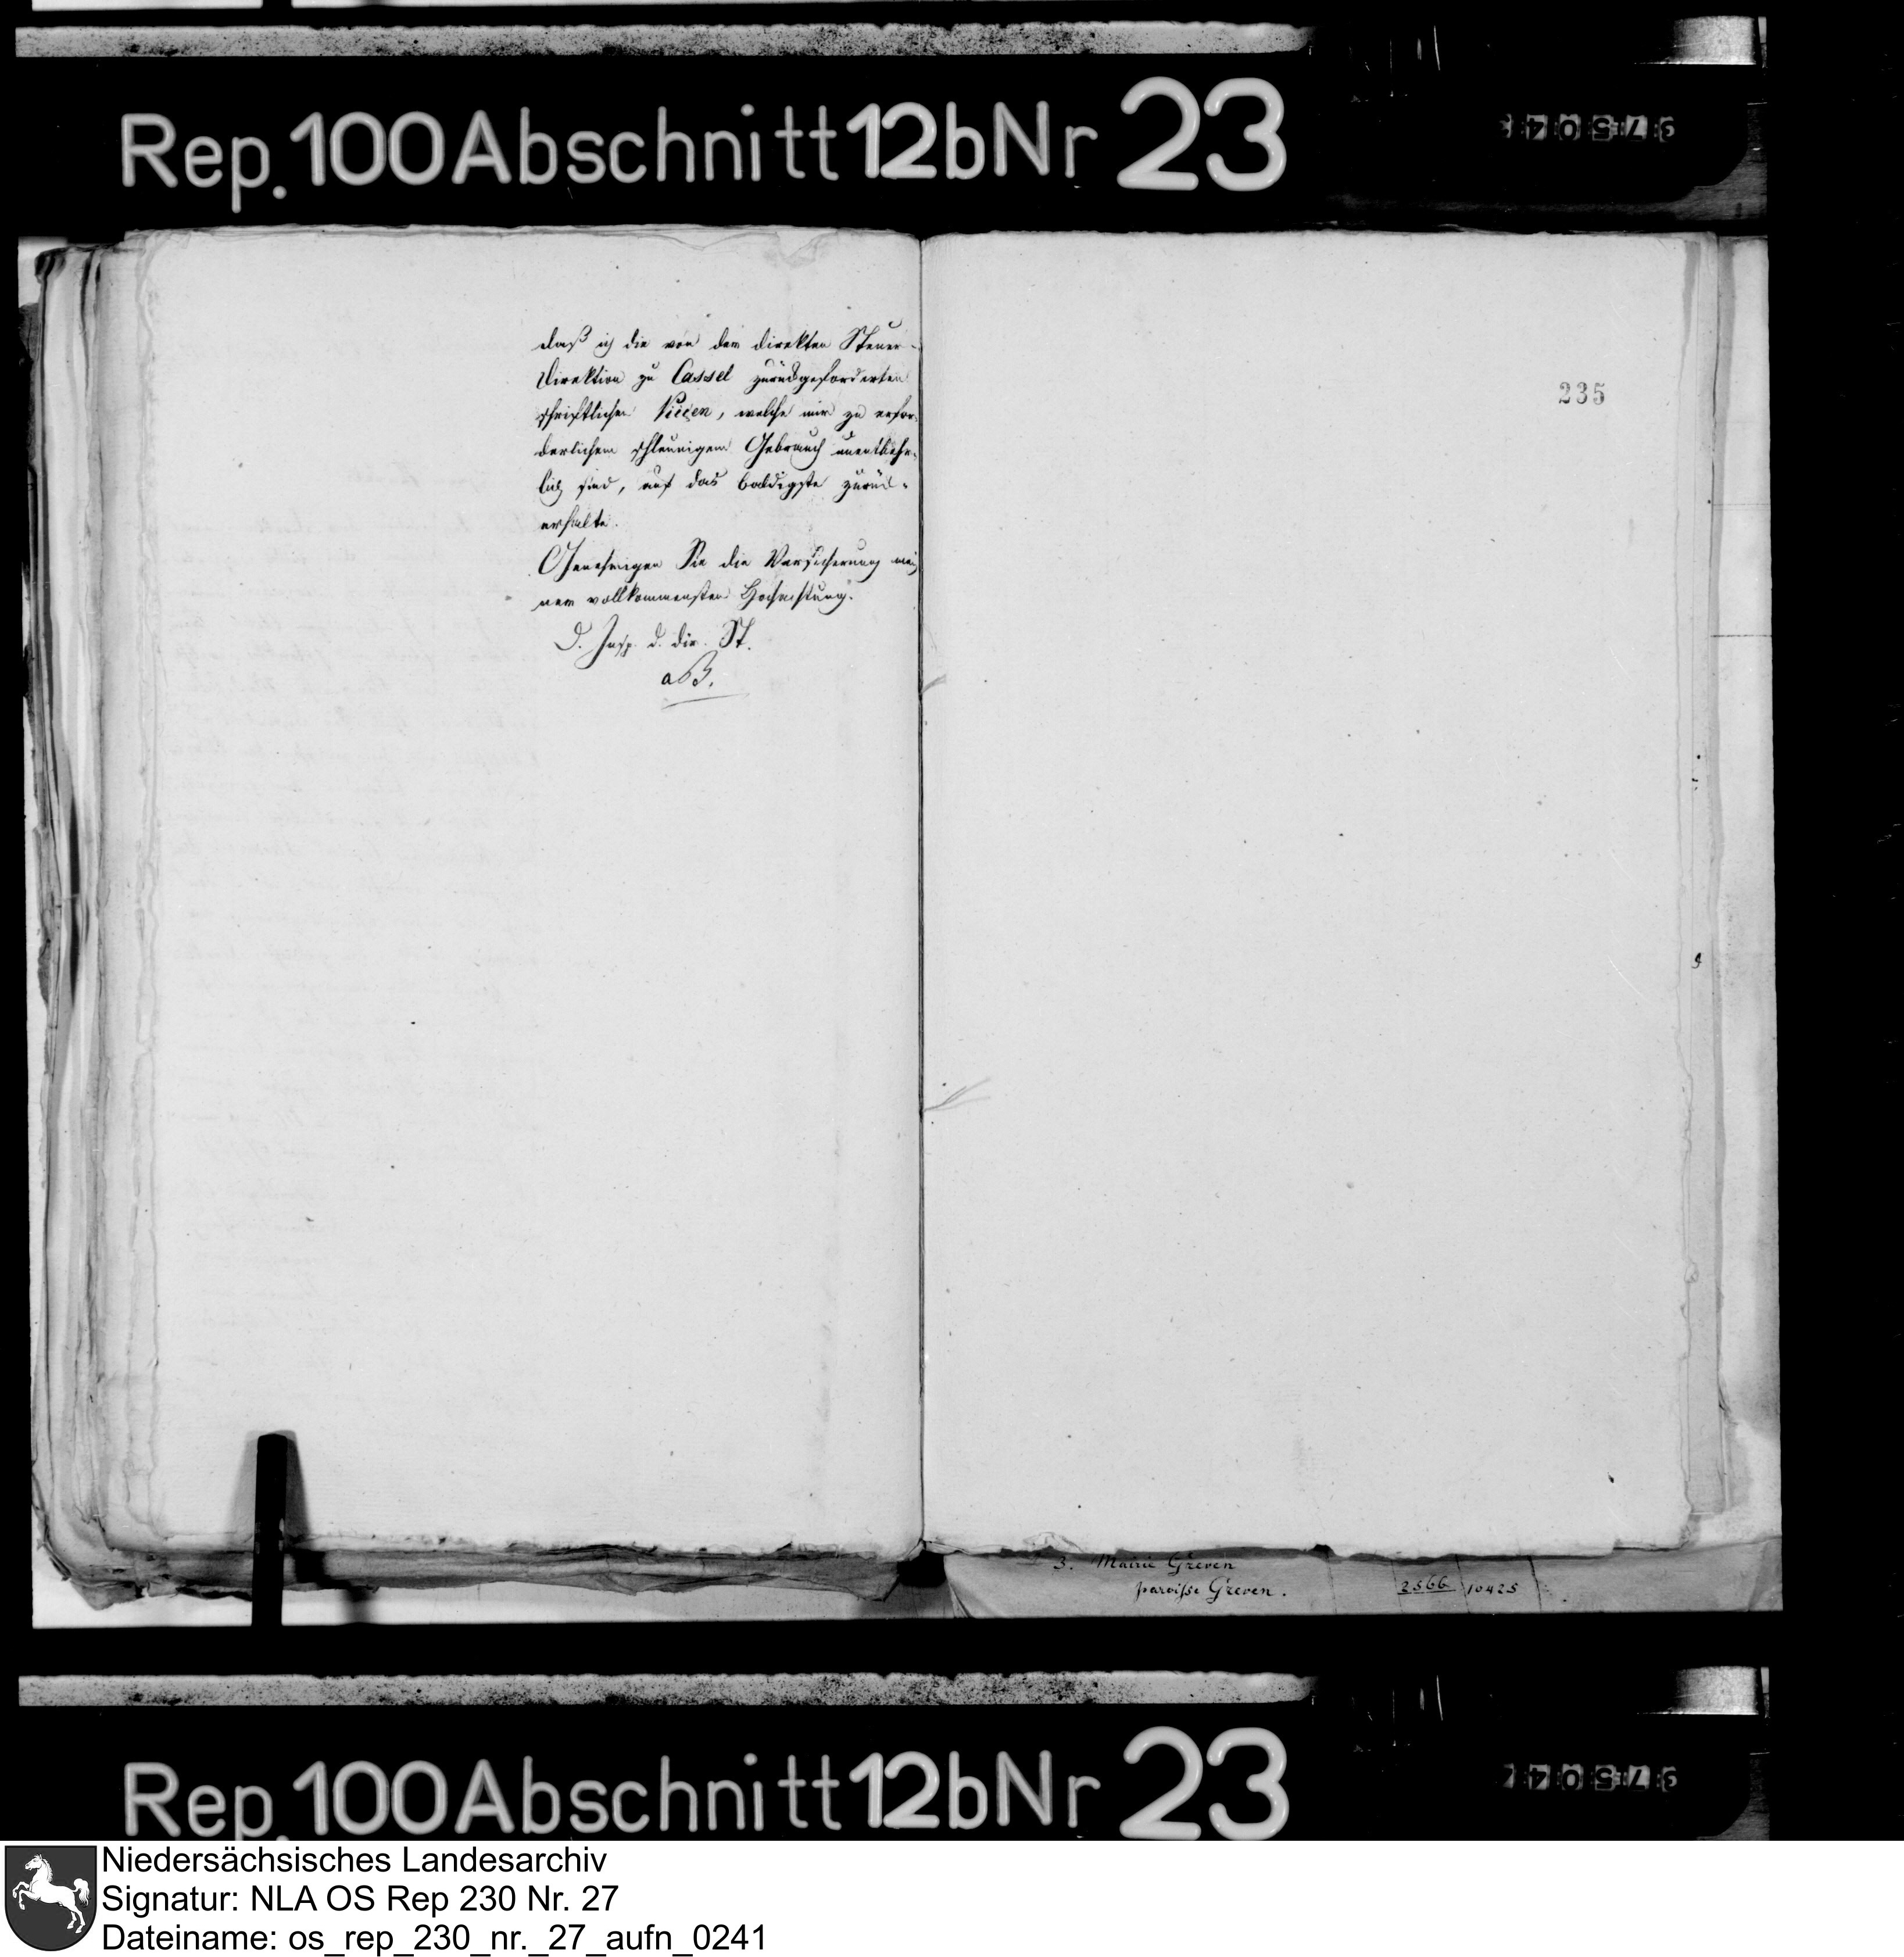 Rep. 100 Abschnitt 12b Nr 23
daß ich die von der direkten Steuer-
Direktion zu Cassel zurückgeforderten
schriftlichen Piecen, welche mir zu erfor-
derlichem schleunigem Gebrauch unentbehr-
lich sind, auf das baldigste zurück-
erhalte.
Genehmigen Sie die Versicherung mei-
ner vollkommensten Hochachtung.
D. Insp. d. dir. St.
aB.
235
3. Mairie Greven
paroisse Greven.
2566 10425
Rep. 100 Abschnitt 12b Nr 23
Niedersächsisches Landesarchiv
Signatur: NLA OS Rep 230 Nr. 27
Dateiname: os_rep_230_nr._27_aufn_0241